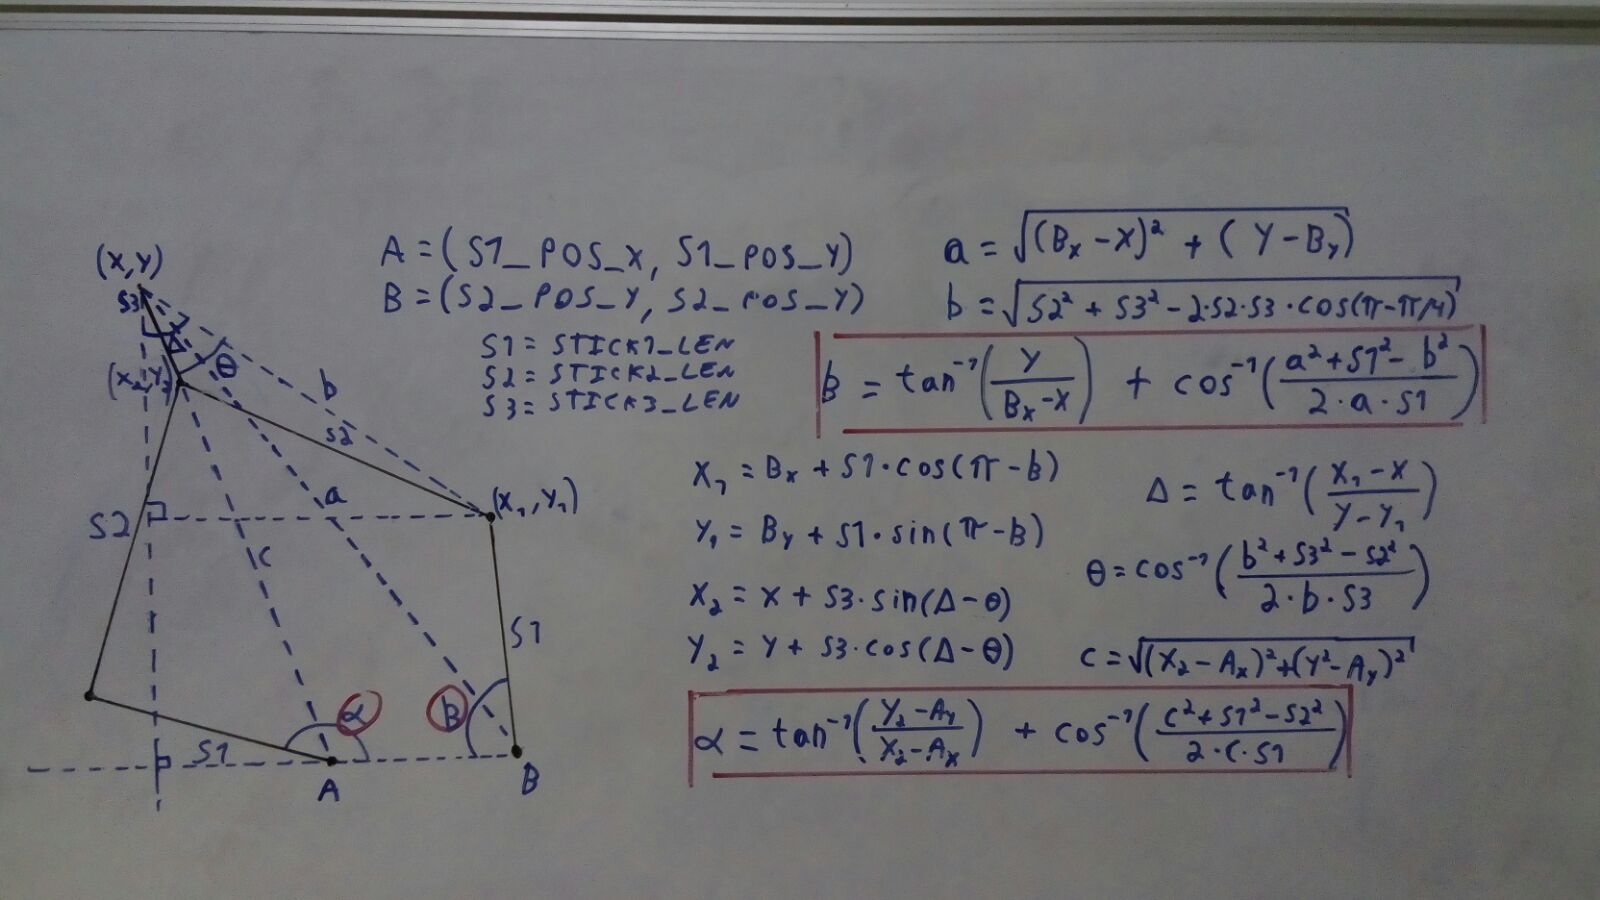 (X,Y)
S3
Δ
θ
(X₂,Y₂)
b
S2
a
(X₁,Y₁)
S2
c
S1
α
B
S1
A
B
A = (S1_POS_X, S1_POS_Y)
B = (S2_POS_Y, S2_POS_Y)
S1 = STICK1_LEN
S2 = STICK2_LEN
S3 = STICK3_LEN
a = √((Bx - X)² + (Y - By))
b = √(S2² + S3² - 2·S2·S3·cos(π - π/4))
B = tan⁻¹(Y / (Bx - X)) + cos⁻¹((a² + S1² - b²) / (2·a·S1))
X₁ = Bx + S1·cos(π - B)
Y₁ = By + S1·sin(π - B)
X₂ = X + S3·sin(Δ - θ)
Y₂ = Y + S3·cos(Δ - θ)
Δ = tan⁻¹((X₁ - X) / (Y - Y₁))
θ = cos⁻¹((b² + S3² - S2²) / (2·b·S3))
c = √((X₂ - Ax)² + (Y² - Ay)²)
α = tan⁻¹((Y₂ - Ay) / (X₂ - Ax)) + cos⁻¹((c² + S1² - S2²) / (2·c·S1))